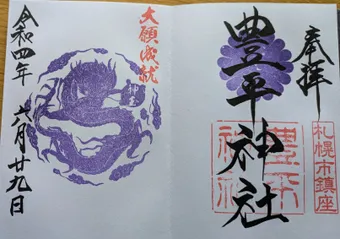 奉拝
豊平神社
豊平
神社
札幌市鎮座
大願成就
令和四年 六月廿九日